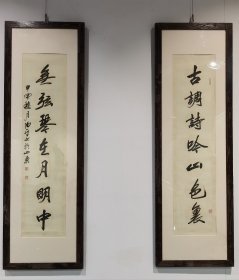 古調詩吟山色裏
無弦琴在月明中